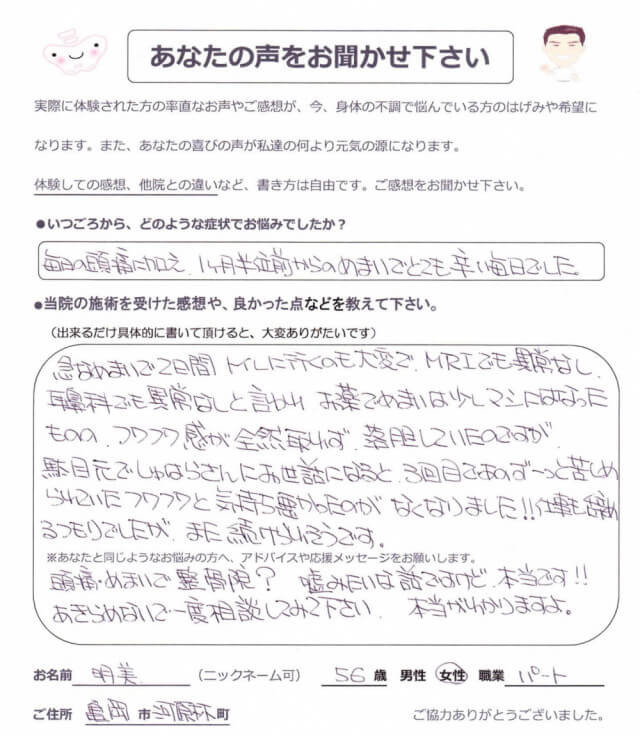 あなたの声をお聞かせ下さい
実際に体験された方の率直なお声やご感想が、今、身体の不調で悩んでいる方のはげみや希望に
なります。また、あなたの喜びの声が私達の何より元気の源になります。
体験しての感想、他院との違いなど、書き方は自由です。ご感想をお聞かせ下さい。
●いつごろから、どのような症状でお悩みでしたか？
毎日の頭痛に加え、1ヶ月半位前からのめまいでとても辛い毎日でした。
●当院の施術を受けた感想や、良かった点などを教えて下さい。
（出来るだけ具体的に書いて頂けると、大変ありがたいです）
急なめまいで2日間 トイレに行くのも大変で、MRIでも異常なし、
耳鼻科でも異常なしと言われ お薬でめまいは少しマシにはなった
ものの、フワフワ感が全然取れず、落胆していたのですが、
駄目元でしゅはらさんにお世話になると、3回目であのず〜っと苦しめ
られていたフワフワと気持ち悪かったのが なくなりました!!仕事も辞め
るつもりでしたが、まだ続けられそうです。
※あなたと同じようなお悩みの方へ、アドバイスや応援メッセージをお願いします。
頭痛・めまいで整骨院？ 嘘みたいな話ですけど、本当です!!
あきらめないで一度相談してみて下さい。 本当がわかりますよ。
お名前 明美 （ニックネーム可） 56 歳 男性 女性 職業 パート
ご住所 亀岡 市 河原林 町 ご協力ありがとうございました。